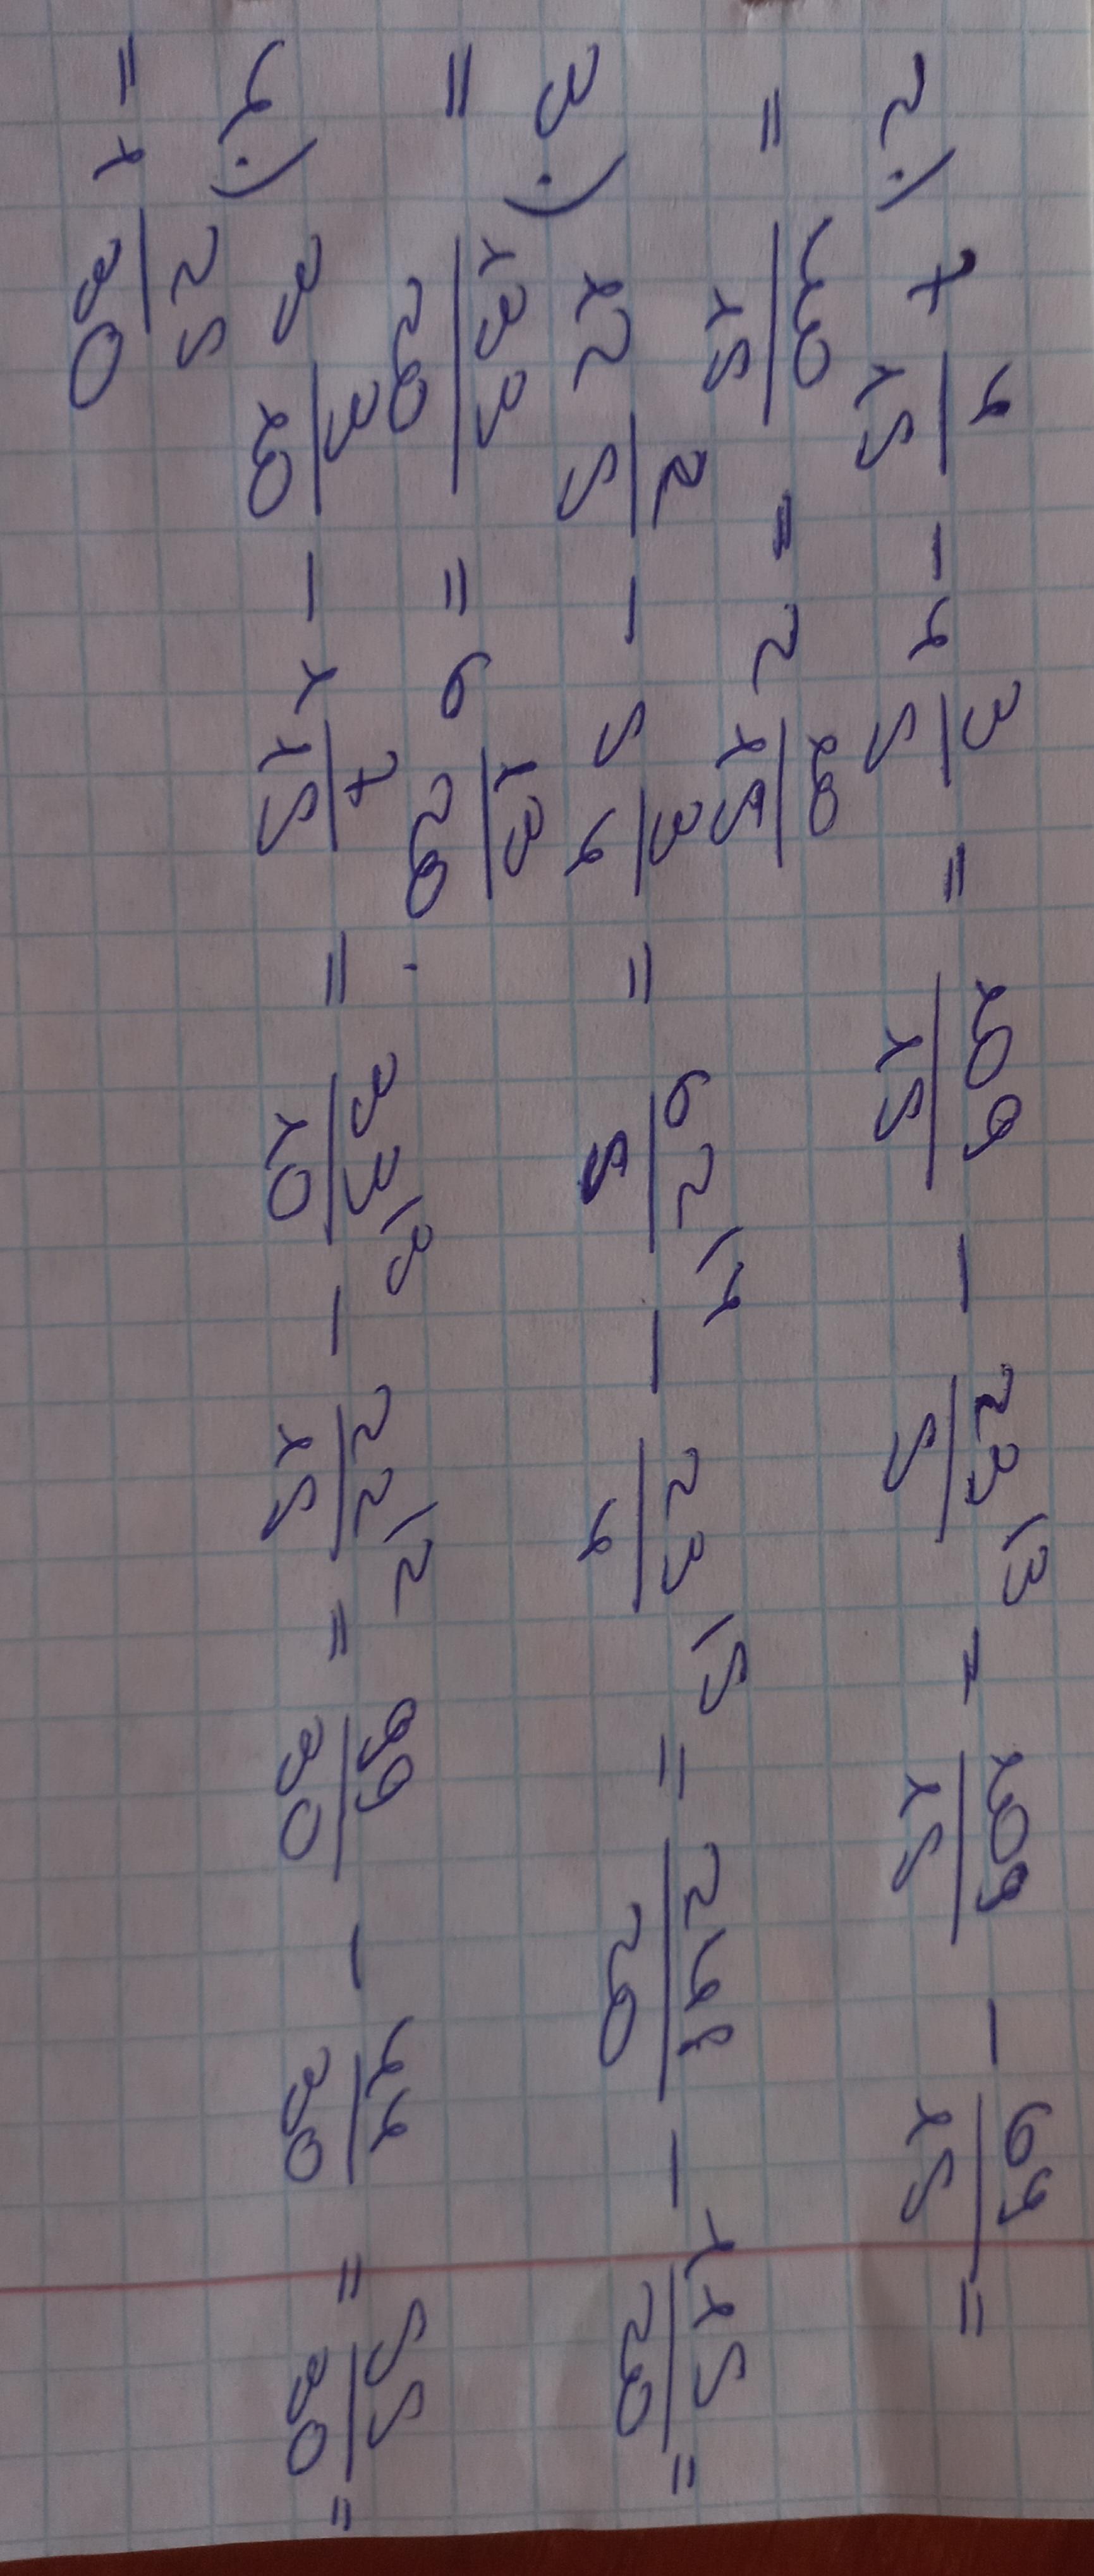 2) 7 4/15 - 4 3/5 = 109/15 - 23/5 \3 = 109/15 - 69/15 =
= 40/15 = 2 10/15
3) 12 2/5 - 5 3/4 = 62/5 \4 - 23/4 \5 = 248/20 - 115/20 =
= 133/20 = 6 13/20
4) 3 3/10 - 1 7/15 = 33/10 \3 - 22/15 \2 = 99/30 - 44/30 = 55/30 =
= 1 25/30